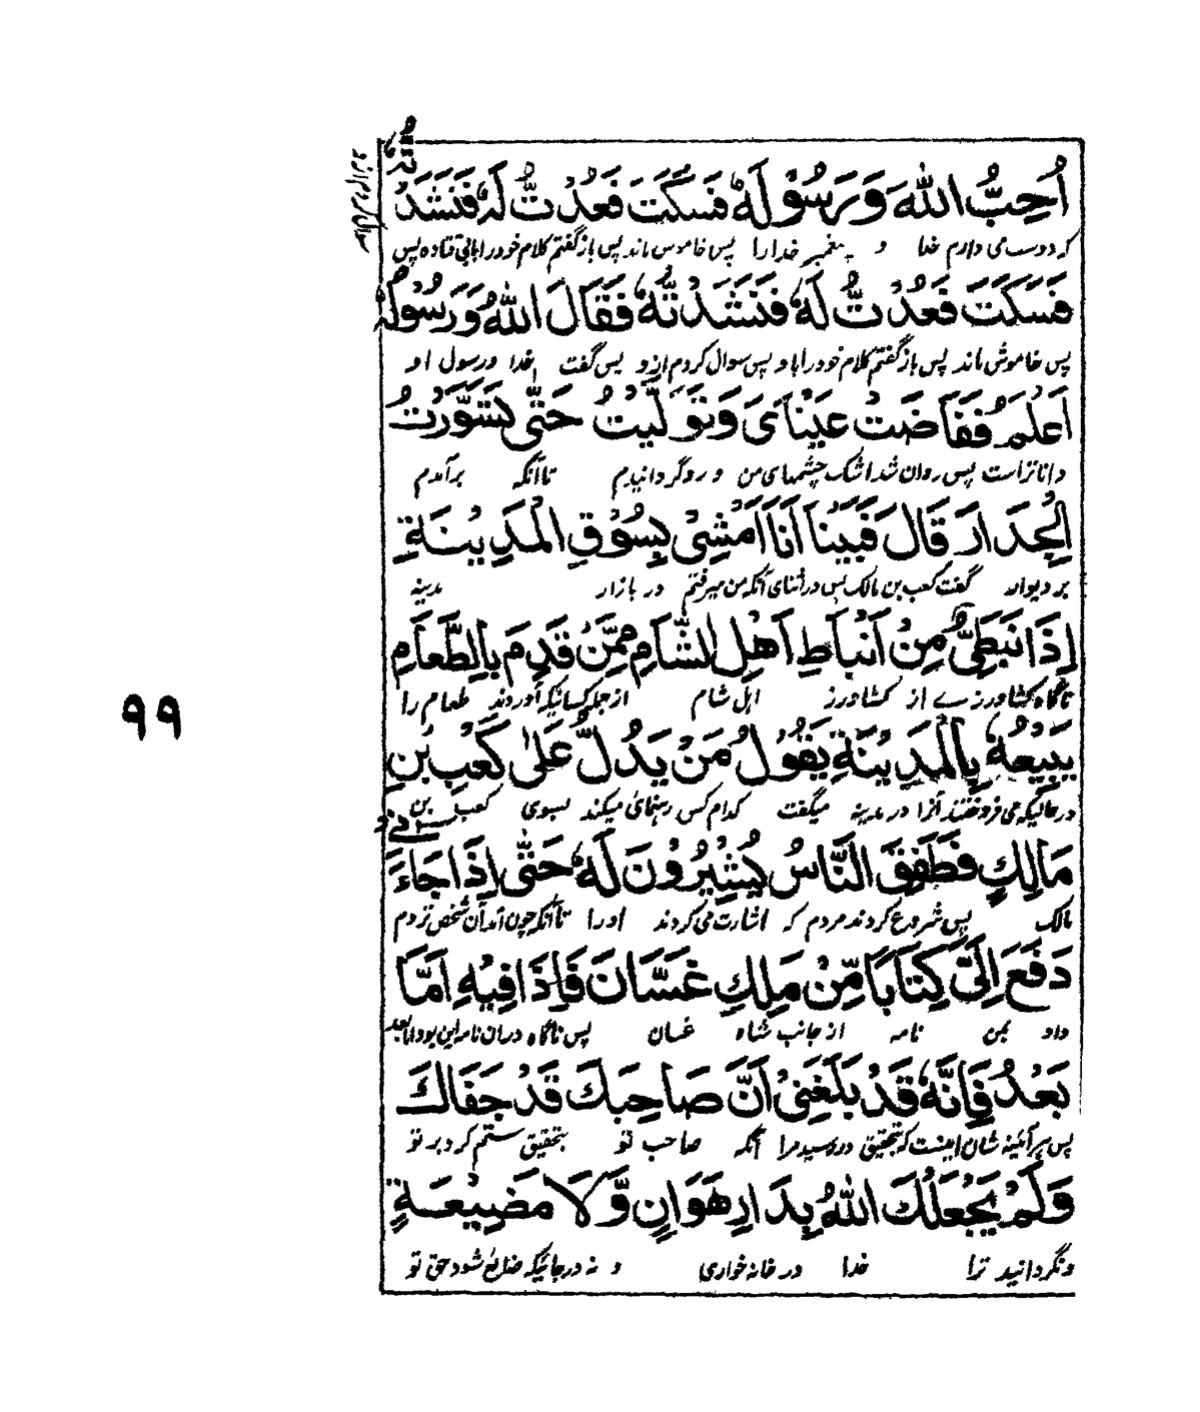 اُحِبُّ اللّٰهَ وَرَسُوْلَهٗ فَسَكَتَ فَعُدْتُّ لَهٗ فَنَشَدْتُّهٗ
که دوست می دارم خدا و پیغمبر خدارا پس خاموش ماند پس باز گفتم کلام خود را بابی قتاده پس
سوال کردم از و
فَسَكَتَ فَعُدْتُّ لَهٗ فَنَشَدْتُّهٗ فَقَالَ اللّٰهُ وَرَسُوْلُهٗ
پس خاموش ماند پس باز گفتم کلام خود را باو پس سوال کردم ازو پس گفت خدا ورسول او
اَعْلَمُ فَفَاضَتْ عَيْنَايَ وَتَوَلَّيْتُ حَتّٰى تَسَوَّرْتُ
داناتر است پس روان شد اشک چشمهای من و رو گردانیدم تا آنکه برآمدم
الْجِدَارَ قَالَ فَبَيْنَا اَنَا اَمْشِيْ بِسُوْقِ الْمَدِيْنَةِ
بر دیوار گفت کعب بن مالک پس در اثنای آنکه من میرفتم در بازار مدینه
اِذَا نَبَطِيٌّ مِنْ اَنْبَاطِ اَهْلِ الشَّامِ مِمَّنْ قَدِمَ بِالطَّعَامِ
ناگاه کشاورزے از کشاورز اهل شام از جمله کسانیکه آوردند طعام را
يَبِيْعُهٗ بِالْمَدِيْنَةِ يَقُوْلُ مَنْ يَدُلُّ عَلٰى كَعْبِ بْنِ
درحالیکه می فروختند آنرا در مدینه میگفت کدام کس رهنمائی میکند بسوی کعب بن
مَالِكٍ فَطَفِقَ النَّاسُ يُشِيْرُوْنَ لَهٗ حَتّٰى اِذَا جَاءَنِيْ
مالک پس شروع کردند مردم که اشارت می کردند اورا تا آنکه چون آمد آن شخص نزدم
دَفَعَ اِلَيَّ كِتَابًا مِّنْ مَلِكِ غَسَّانَ فَاِذَا فِيْهِ اَمَّا
داد بمن نامه از جانب شاه غسان پس ناگاه دران نامه این بود اما بعد
بَعْدُ فَاِنَّهٗ قَدْ بَلَغَنِيْ اَنَّ صَاحِبَكَ قَدْ جَفَاكَ
پس هر آئینه شان اینست که بتحقیق در رسید مرا آنکه صاحب تو بتحقیق ستم کرد بر تو
وَلَمْ يَجْعَلْكَ اللّٰهُ بِدَارِ هَوَانٍ وَّلَا مَضِيْعَةٍ
ونگردانید ترا خدا در خانه خواری و نه در جائیکه ضائع شود حق تو
٩٩